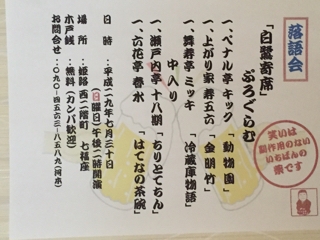 落語会
「白鷺寄席」
ぷろぐらむ
一、ベナル亭キック「動物園」
一、上がり家寿五六「金明竹」
一、舞寿亭ミッキ「冷蔵庫物語」
中入り
一、瀬戸内亭十八朗「ちりとてちん」
一、六花亭春水「はてなの茶碗」
日時：平成二九年七月三十日
(日曜日)午後二時開演
場所：姫路西二階町 七福座
木戸銭：無料(カンパ歓迎)
お問合せ：〇九〇-四五六三-八五八九(河本)
笑いは
副作用のない
いちばんの
薬です